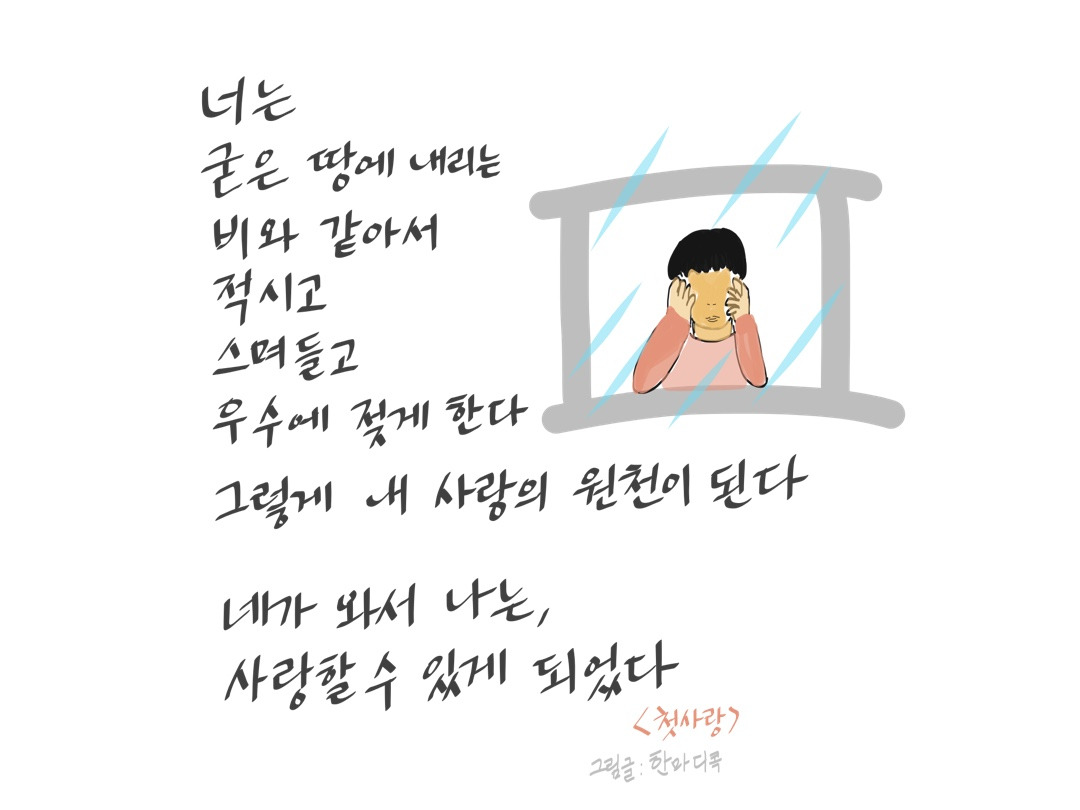 너는
굳은 땅에 내리는
비와 같아서
적시고
스며들고
우수에 젖게 한다
그렇게 내 사랑의 원천이 된다
네가 와서 나는,
사랑할 수 있게 되었다
<첫사랑>
그림글 : 한마디쪽